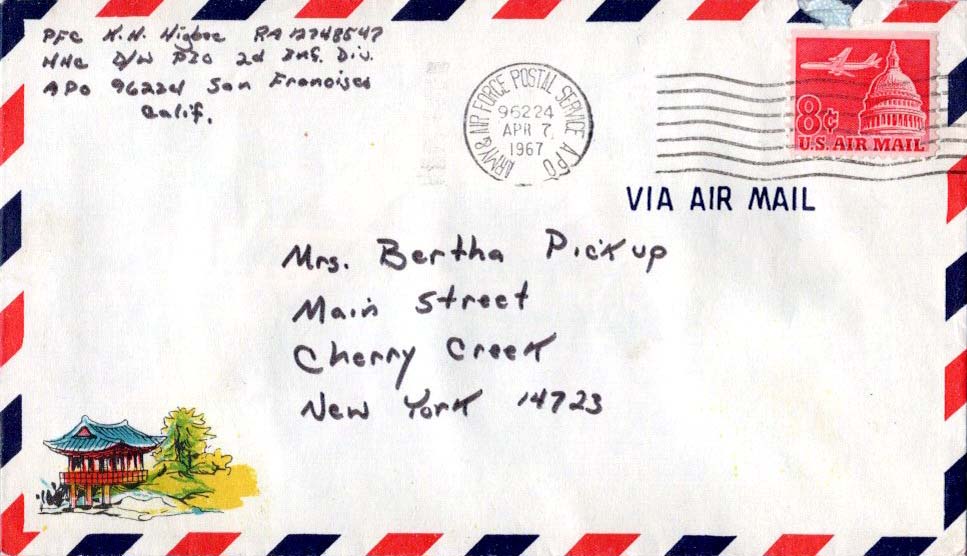 PFC K.N. Higbee RA12748547
HHC D/W PIO 2d Inf. Div.
APO 96224 San Francisco
Calif.
ARMY & AIR FORCE POSTAL SERVICE APO
96224
APR 7,
1967
8¢
U.S. AIR MAIL
VIA AIR MAIL
Mrs. Bertha Pickup
Main Street
Cherry Creek
New York 14723